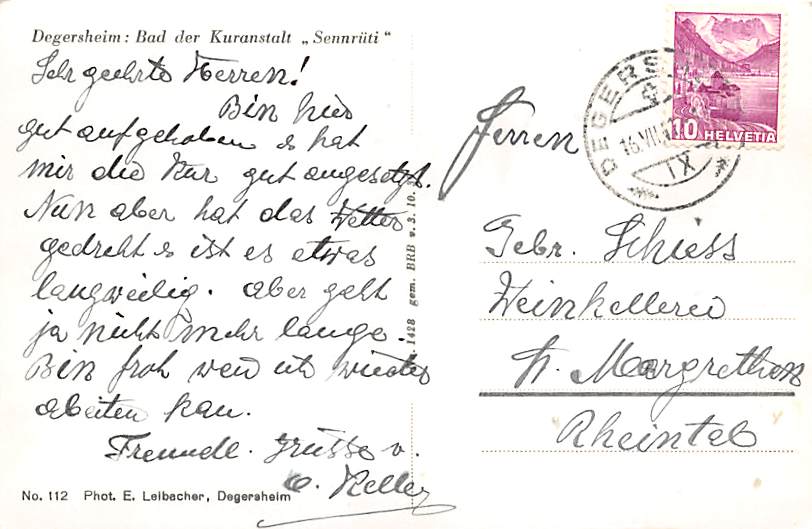 Degersheim: Bad der Kuranstalt „Sennrüti“
Sehr geehrte Herren!
Bin hier
gut aufgehoben & hat
mir die Kur gut angesetzt.
Nun aber hat das Wetter
gedreht & ist es etwas
langweilig. Aber geht
ja nicht mehr lange.
Bin froh wen ich wieder
abeiten kan.
Freundl. Grüsse v.
O. Keller
No. 112 Phot. E. Leibacher, Degersheim
1428 gem. BRB v. 3. 10.
10 HELVETIA
DEGERS
16.VIII
IX
Herren
Gebr. Schiess
Weinkellerei
St. Margrethen
Rheintal